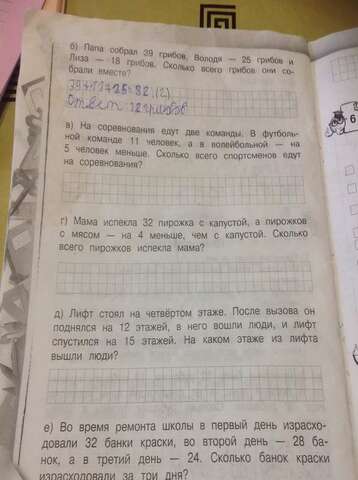 б) Папа собрал 39 грибов, Володя — 25 грибов и
Лиза — 18 грибов. Сколько всего грибов они со-
брали вместе?
39+18+25=82 (г)
Ответ: 82 грибов
в) На соревнования едут две команды. В футболь-
ной команде 11 человек, а в волейбольной — на
5 человек меньше. Сколько всего спортсменов едут
на соревнования?
г) Мама испекла 32 пирожка с капустой, а пирожков
с мясом — на 4 меньше, чем с капустой. Сколько
всего пирожков испекла мама?
д) Лифт стоял на четвёртом этаже. После вызова он
поднялся на 12 этажей, в него вошли люди, и лифт
спустился на 15 этажей. На каком этаже из лифта
вышли люди?
е) Во время ремонта школы в первый день израсхо-
довали 32 банки краски, во второй день — 28 ба-
нок, а в третий день — 24. Сколько банок краски
израсходовали за три дня?
6